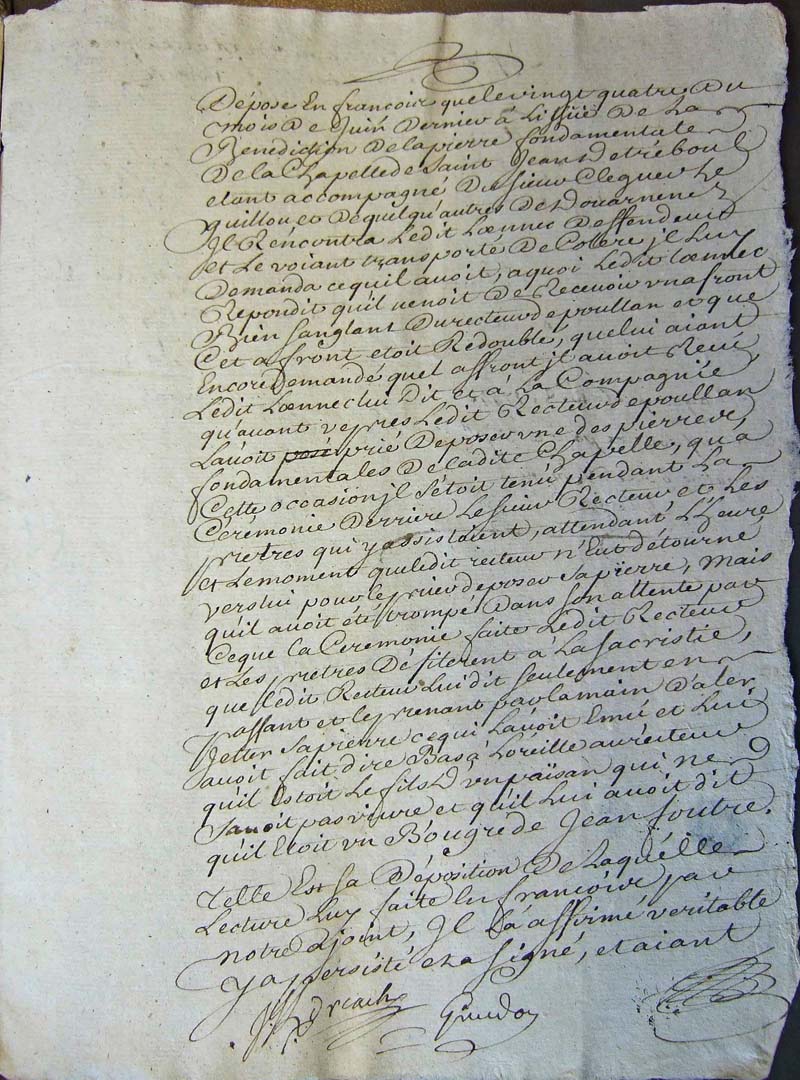 Dépose En françoix que le vingt quatre Du
mois De Juin Dernier à Lissüe De La
Bénédiction De la pierre fondamentale
De la Chapelle de Saint Jean D et tréboul
etant accompagné Du sieur Cleguer Le
guillou et De quelqu'autres De Douarnenez
Il Rencontra Ledit Laennec Deffendeur
et Le voiant transporté De Colere jl Luy
Demanda ce quil avoit, a quoi Ledit Laennec
Repondit quil venoit De Recevoir un affront
Bien sanglant Du recteur de poullan et que
Cet affront etoit Redoublé, que lui aiant
Encore Demandé quel affront jl avoit Receu
Ledit Laennec lui Dit et à La Compagnie
qu'avant vepres Ledit Recteur de poullan
Lavoit prié De poser une des pierres
fondamentales De ladite Chapelle, qu'a
Cette occasion jl s'étoit tenu pendant La
Cérémonie Derriere Le sieur Recteur et Les
prêtres qui y assistoient, attendant L'heure
et Le moment que ledit recteur n'Eut détourné
vers lui pour le prier de poser sa pierre, mais
quil avoit été trompé Dans son attente par
Ce que la Ceremonie faite Ledit Recteur
et Les prêtres Défilerent a La sacristie,
que Ledit Recteur Lui dit seulement en
passant et le prenant par la main D'aler
Jetter sa pierre ce qui L'avoit Emu et Lui
avoit fait dire Bas à Loreille au recteur
qu'il Estoit Le fils D un païsan qui ne
savoit pas vivre et qu'il Lui avoit dit
qu'il Etoit un Bougre de Jean foutre.
Telle Est sa Déposition De Laquélle
Lecture Luy faite En françoix par
notre adjoint, Il L'a affirmé veritable
y a persisté et a signé, et aiant